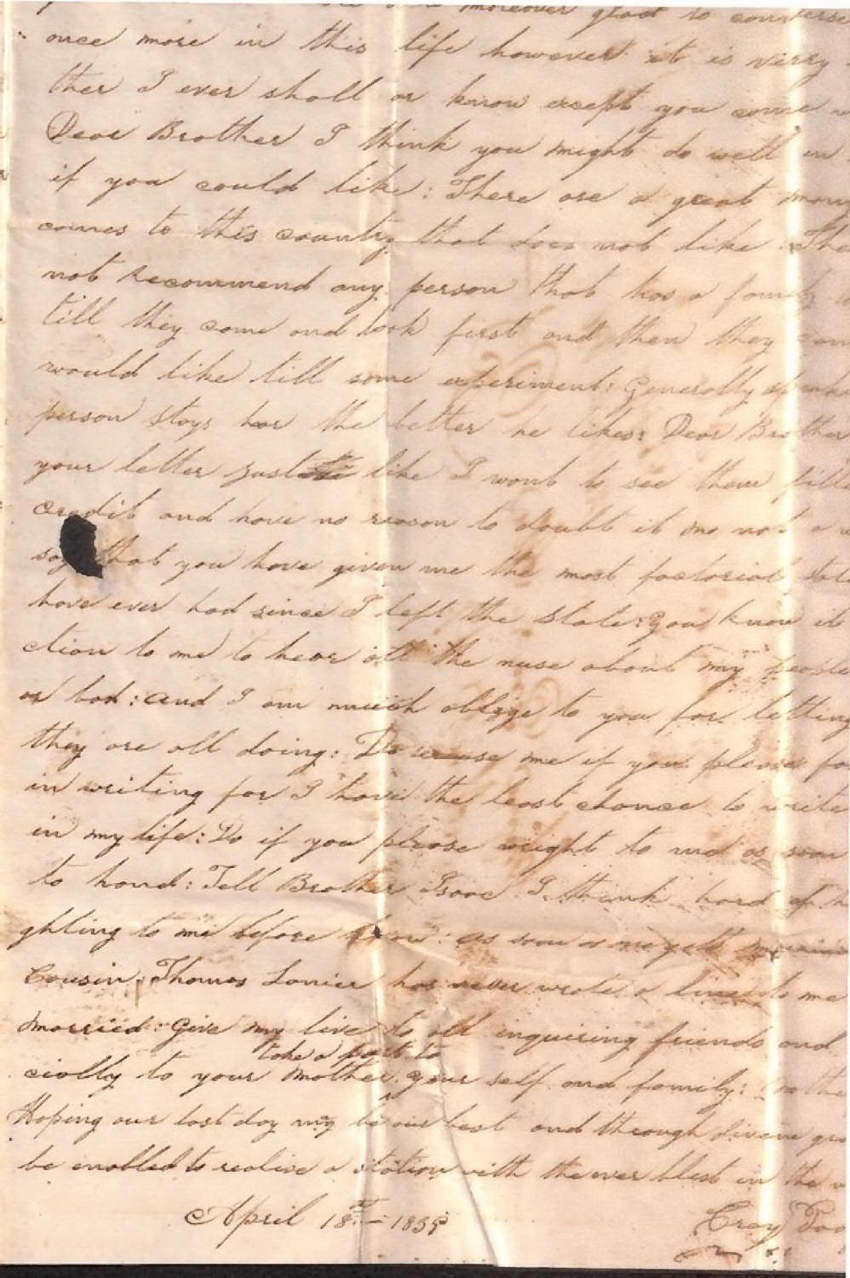 moreover glad to converse
once more in this life however it is verry
ther I ever shall or know except you come
Dear Brother I think you might do well in
if you could like: There are a great many
comes to this country that does not like. The
not Recommend any person that has a family
till they come and look first and then they can
would like till some experiment: Generally
person stays her the better he likes: Dear Brother
your letter just like I want to see them fille
credit and have no reason to doubt it no not a
say that you have given me the most factorial state
have ever had since I left the State: you know it
ction to me to hear all the nuse about my people
or bad: and I am much oblege to you for letting
they are all doing: Do excuse me if you please for
in writing for I have the least chance to write
in my life: Do if you please wright to me as soon
to hand: Tell Brother Isaac I think hard of
ghting to me before now: as soon as
Cousin Thomas Lanier has never wrote a line to me
married: Give my live to all inquiring friends and
take a part to
cially to your Mother your self and family:
Hoping our last day my be our best and through divine gra
be enabled to realise a station with the ever blest in the
April 18th 1835
Cray